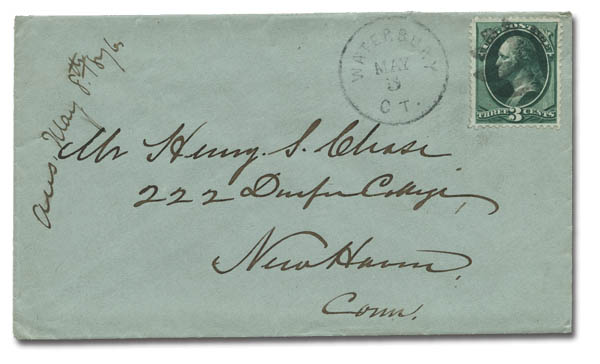 WATERBURY
MAY
3
CT.
THREE 3 CENTS
ans. May 8th / 76
Mr Henry S. Chase
222 Durfee College,
New Haven,
Conn.